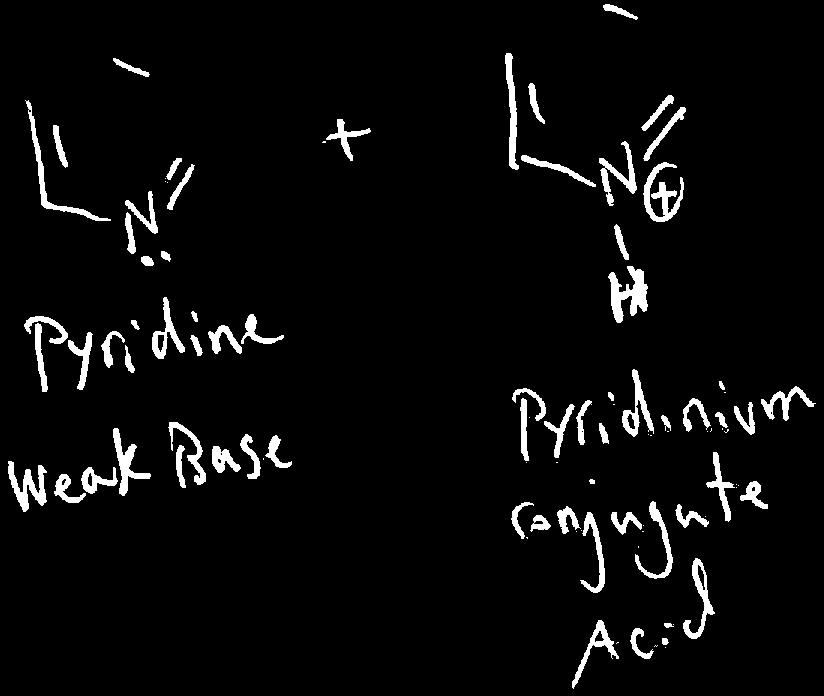 +
N
N ⊕
H
Pyridine
Weak Base
Pyridinium
conjugate
Acid